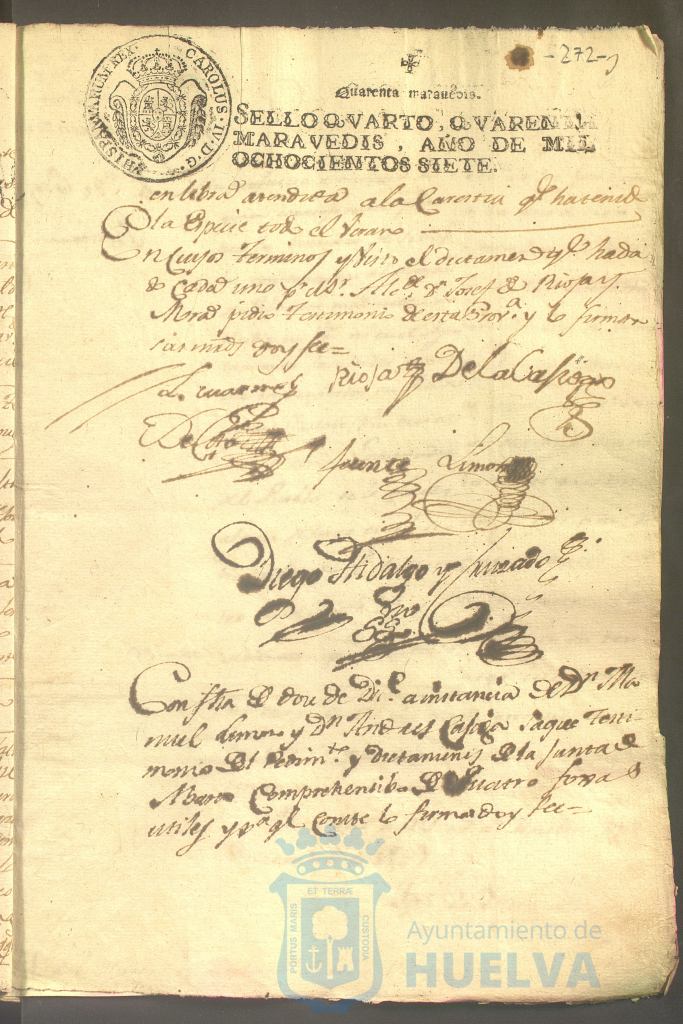 -272-
CAROLUS · IV · D · G · HISPANIARUM REX
Quarenta maravedis.
SELLO QVARTO, QVARENTA
MARAVEDIS, AÑO DE MIL
OCHOCIENTOS SIETE.
en libra a la Carestia qe ha tenido
la Especie todo el Verano
En cuyos terminos y visto el dictamen qe ha da
do cada uno pr el Sr. Dn Josef de Rioja y
Mora pidio testimonio de esta Prova y lo firmar
doy fee=
Rioja De la Cassiga
Fuente Limon
Diego Hidalgo y Cruzado
Con fha de doce de Dice a instancia de Dn Ma
nuel Limon y Dn Andres Casiga saque testi
monio del Pedimto y dictamenes de la Junta de
Comprehensibo de quatro foxas
utiles y pa qe conste lo firmo doy fee=
PORTUS MARIS ET TERRÆ CUSTODIA
Ayuntamiento de
HUELVA